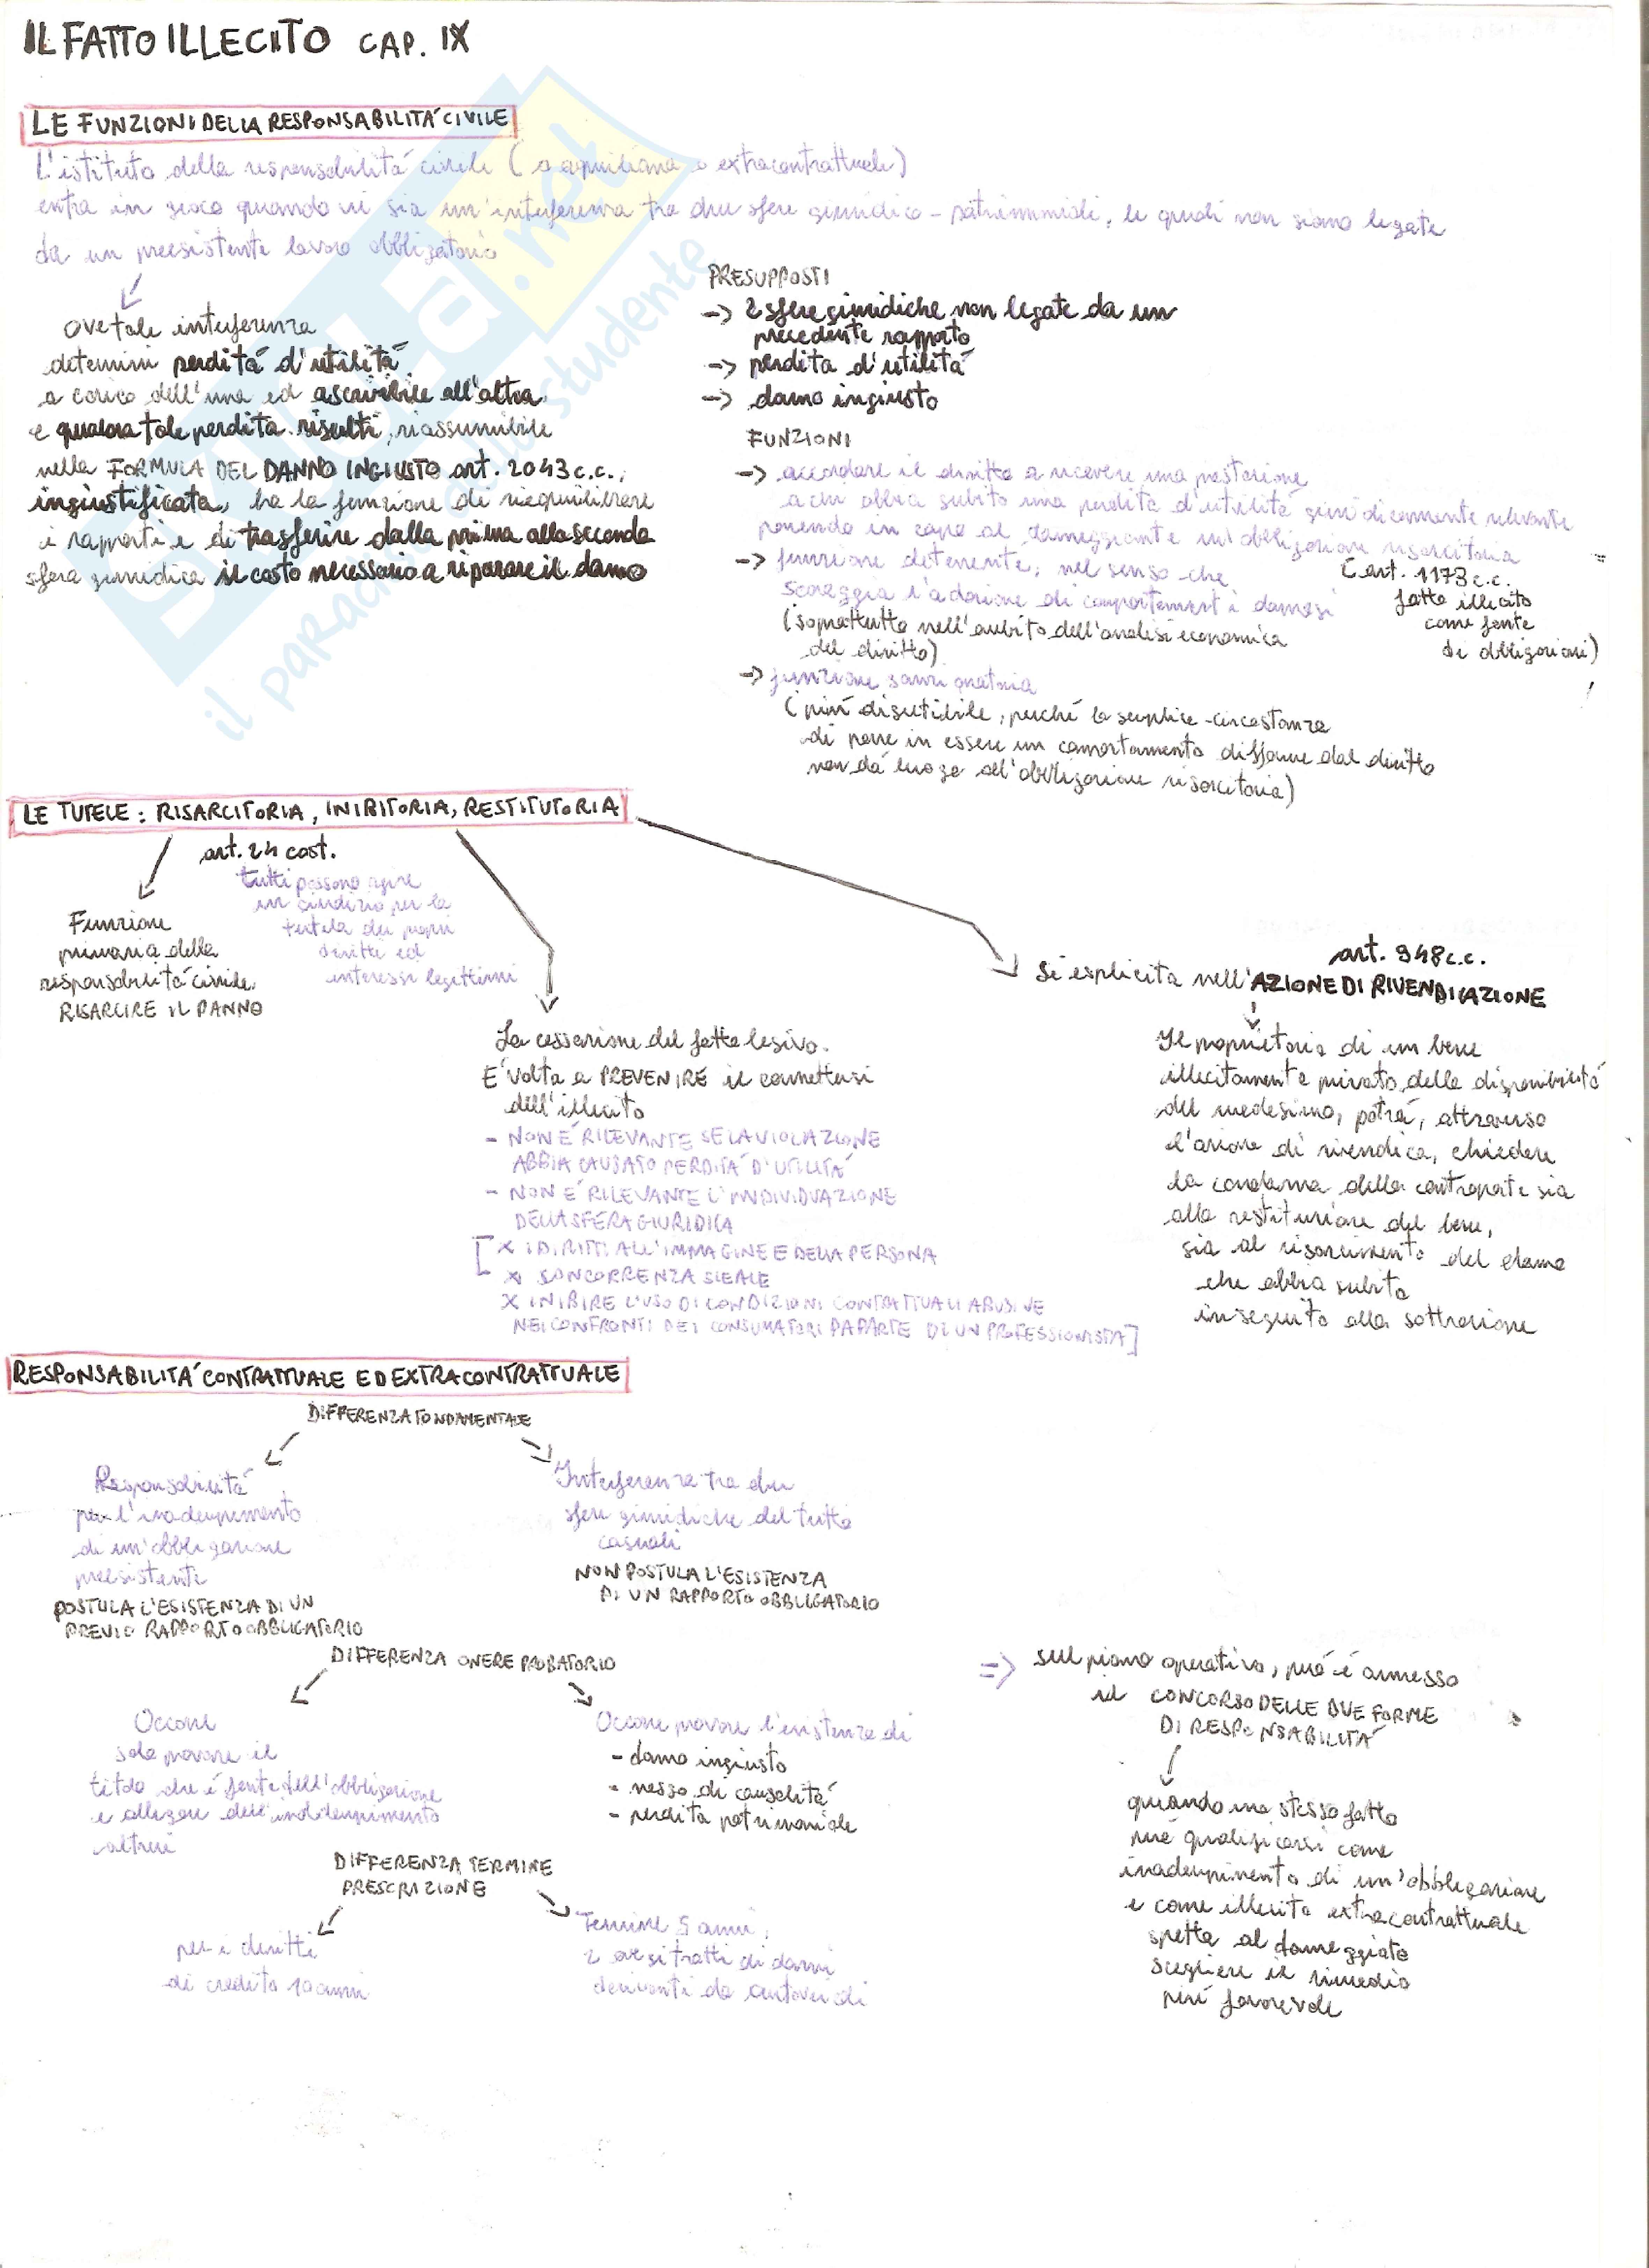 IL FATTO ILLECITO CAP. IX
LE FUNZIONI DELLA RESPONSABILITÁ CIVILE
L'istituto della responsabilitá civile (o aquiliana o extracontrattuale)
entra in gioco quando vi sia un'interferenza tra due sfere giuridico-patrimoniali, le quali non siano legate
da un preesistente lavoro obbligatorio
ove tale interferenza
determini perditá d'utilitá
a carico dell'una ed ascrivibile all'altra
e qualora tale perdita risulti, riassumibile
nella FORMULA DEL DANNO INGIUSTO art. 2043 c.c.,
ingiustificata, ha la funzione di riequilibrare
i rapporti e di trasferire dalla prima alla seconda
sfera giuridica il costo necessario a riparare il danno
PRESUPPOSTI
-> 2 sfere giuridiche non legate da un
precedente rapporto
-> perdita d'utilitá
-> danno ingiusto
FUNZIONI
-> accordare il diritto a ricevere una prestazione
a chi abbia subito una perdita d'utilitá giuridicamente rilevante
ponendo in capo al danneggiante un'obbligazione risarcitoria
(art. 1173 c.c.
fatto illecito
come fonte
di obbligazioni)
-> funzione deterrente, nel senso che
scoraggia l'adozione di comportamenti dannosi
(soprattutto nell'ambito dell'analisi economica
del diritto)
-> funzione sanzionatoria
(piú discutibile, perché la semplice circostanza
di porre in essere un comportamento difforme dal diritto
non dá luogo all'obbligazione risarcitoria)
LE TUTELE: RISARCITORIA, INIBITORIA, RESTITUTORIA
art. 24 cost.
tutti possono agire
in giudizio per la
tutela dei propri
diritti ed
interessi legittimi
Funzione
primaria della
responsabilitá civile,
RISARCIRE IL DANNO
La cessazione del fatto lesivo.
É volta a PREVENIRE il commettersi
dell'illecito
- NON É RILEVANTE SE LA VIOLAZIONE
ABBIA CAUSATO PERDITÁ D'UTILITÁ
- NON É RILEVANTE L'INDIVIDUAZIONE
DELLA SFERA GIURIDICA
[x I DIRITTI ALL'IMMAGINE E DELLA PERSONA
x CONCORRENZA SLEALE
x INIBIRE L'USO DI CONDIZIONI CONTRATTUALI ABUSIVE
NEI CONFRONTI DEI CONSUMATORI DA PARTE DI UN PROFESSIONISTA]
art. 948 c.c.
Si esplicita nell'AZIONE DI RIVENDICAZIONE
Il proprietario di un bene
illecitamente privato della disponibilitá
del medesimo, potrá, attraverso
l'azione di rivendica, chiedere
la condanna della controparte sia
alla restituzione del bene,
sia al risarcimento del danno
che abbia subito
in seguito alla sottrazione
RESPONSABILITÁ CONTRATTUALE ED EXTRACONTRATTUALE
DIFFERENZA FONDAMENTALE
Responsabilitá
per l'inadempimento
di un'obbligazione
preesistente
POSTULA L'ESISTENZA DI UN
PREVIO RAPPORTO OBBLIGATORIO
Interferenza tra due
sfere giuridiche del tutto
casuali
NON POSTULA L'ESISTENZA
DI UN RAPPORTO OBBLIGATORIO
DIFFERENZA ONERE PROBATORIO
Occorre
solo provare il
titolo che é fonte dell'obbligazione
e allegare dell'inadempimento
altrui
Occorre provare l'esistenza di
- danno ingiusto
- nesso di causalitá
- perdita patrimoniale
DIFFERENZA TERMINE
PRESCRIZIONE
per i diritti
di credito 10 anni
Termine 5 anni,
2 ove si tratti di danni
derivanti da autoveicoli
=> sul piano operativo, peró é ammesso
il CONCORSO DELLE DUE FORME
DI RESPONSABILITÁ
quando uno stesso fatto
puó qualificarsi come
inadempimento di un'obbligazione
e come illecito extracontrattuale
spetta al danneggiato
scegliere il rimedio
piú favorevole
il paradiso dello studente